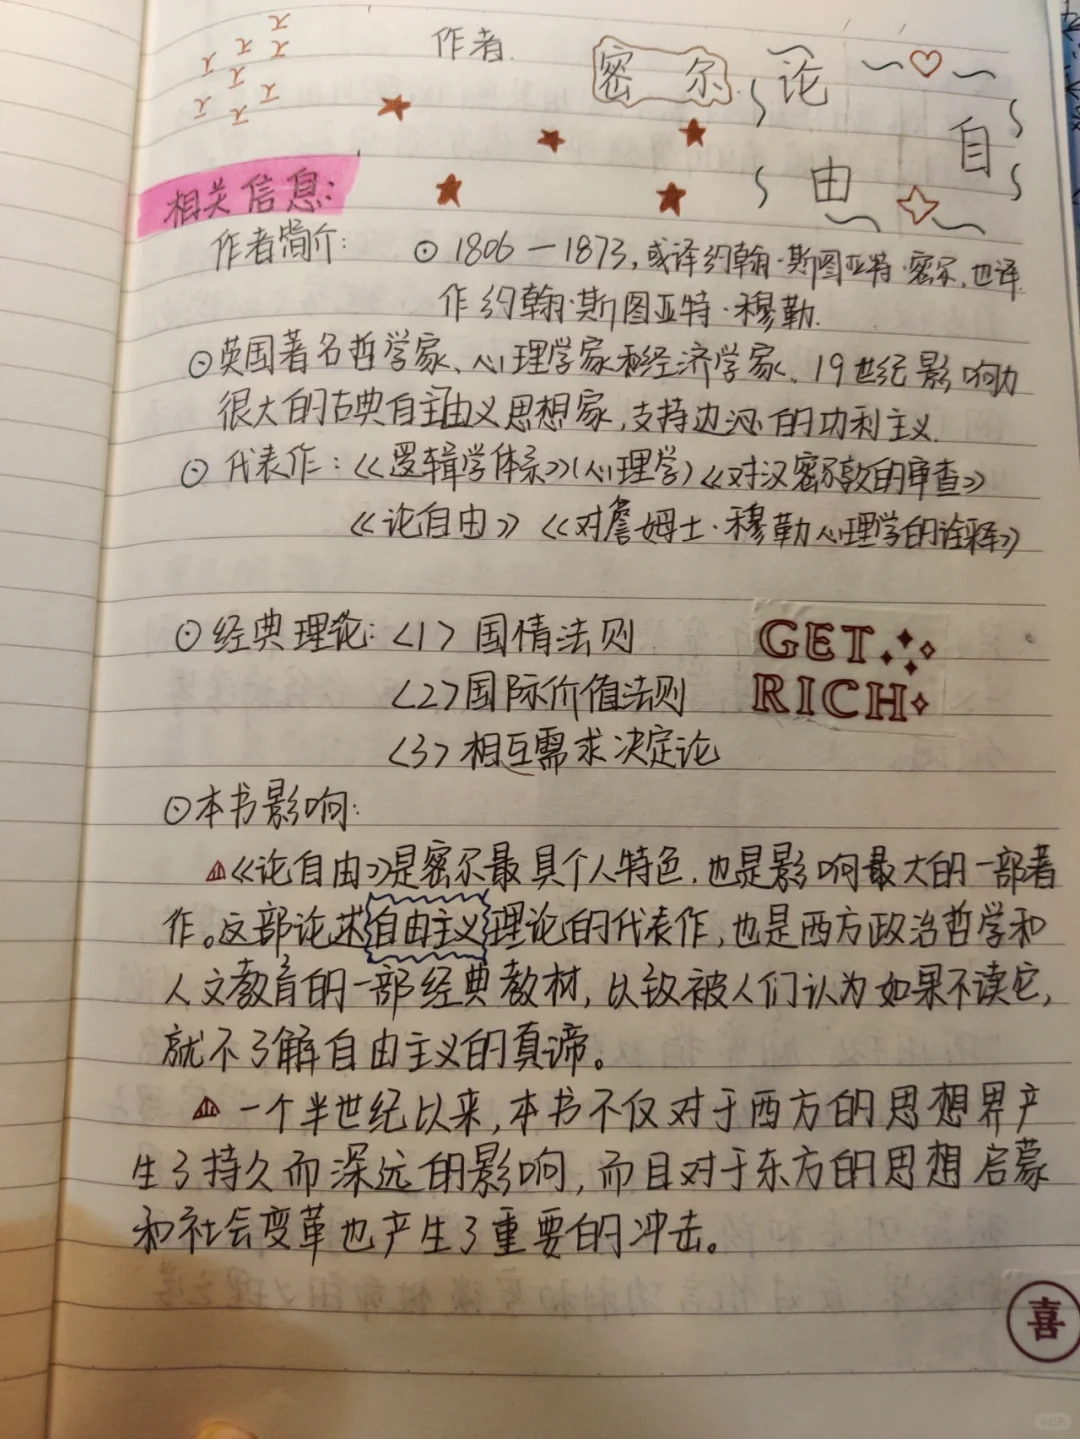 作者 密尔 论
自
由
相关信息:
作者简介: ⊙ 1806-1873,或译约翰·斯图亚特·密尔,也译
作约翰·斯图亚特·穆勒.
⊙英国著名哲学家、心理学家和经济学家、19世纪影响力
很大的古典自由主义思想家,支持边沁的功利主义.
⊙ 代表作:《逻辑学体系》(心理学)《对汉密尔敦的审查》
《论自由》《对詹姆士·穆勒心理学的诠释》
⊙ 经典理论:<1> 国情法则
<2> 国际价值法则
<3> 相互需求决定论
GET
RICH
⊙本书影响:
《论自由》是密尔最具个人特色,也是影响最大的一部著
作。这部论述自由主义理论的代表作,也是西方政治哲学和
人文教育的一部经典教材,以致被人们认为如果不读它,
就不了解自由主义的真谛。
一个半世纪以来,本书不仅对于西方的思想界产
生了持久而深远的影响,而且对于东方的思想启蒙
和社会变革也产生了重要的冲击。
喜